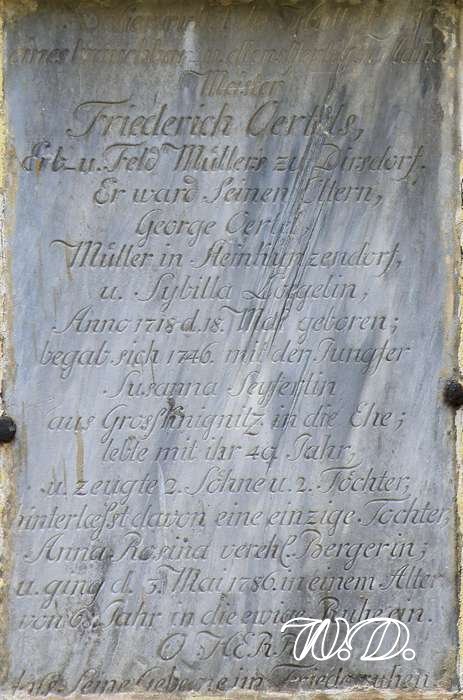 Meister
Friederich Oertels,
Erb- u. Feld Müllers zu Dirsdorf.
Er ward Seinen Eltern,
George Oertel,
Müller in Steinkunzendorf,
u. Sybilla
Anno 1718 d. 18. Mai geboren;
begab sich 1746. mit der Jungfer
Susanna Seyfertin
aus Grossknignitz in die Ehe;
lebte mit ihr 40 Jahr,
u. zeugte 2. Söhne u. 2. Töchter,
hinterlæsst davon eine einzige Tochter,
Anna Rosina verehl. Bergerin;
u. ging d. 3. Mai 1786. in einem Alter
von 68. Jahr in die ewige Ruhe ein.
O HERR
lass Seine Gebeine im Friede ruhen
W.D.